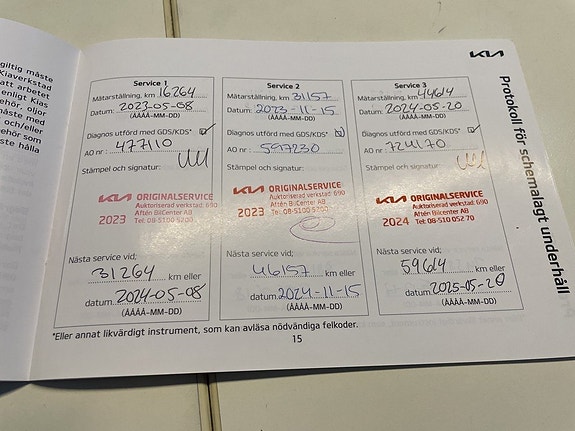 giltig måste
Kiaverkstad
att arbetet
enligt Kias
ehör, oljor
måste med
och/eller
behör som
ste hålla
KIA
Protokoll för schemalagt underhåll
Service 1
Mätarställning, km 16264
Datum: 2023-05-08
(ÅÅÅÅ-MM-DD)
Diagnos utförd med GDS/KDS*
AO nr: 477110
Stämpel och signatur:
KIA ORIGINALSERVICE
Auktoriserad verkstad: 690
2023 Aftén BilCenter AB
Tel: 08-5100 5200
Nästa service vid;
31264 km eller
datum 2024-05-08
(ÅÅÅÅ-MM-DD)
Service 2
Mätarställning, km 31157
Datum: 2023-11-15
(ÅÅÅÅ-MM-DD)
Diagnos utförd med GDS/KDS*
AO nr: 597230
Stämpel och signatur:
KIA ORIGINALSERVICE
Auktoriserad verkstad: 690
2023 Aftén BilCenter AB
Tel: 08-5100 5200
Nästa service vid;
46157 km eller
datum 2024-11-15
(ÅÅÅÅ-MM-DD)
Service 3
Mätarställning, km 44614
Datum: 2024-05-20
(ÅÅÅÅ-MM-DD)
Diagnos utförd med GDS/KDS*
AO nr: 724170
Stämpel och signatur:
KIA ORIGINALSERVICE
Auktoriserad verkstad: 690
2024 Aftén Bilcenter AB
Tel: 08-510 052 70
Nästa service vid;
59614 km eller
datum 2025-05-20
(ÅÅÅÅ-MM-DD)
*Eller annat likvärdigt instrument, som kan avläsa nödvändiga felkoder.
15